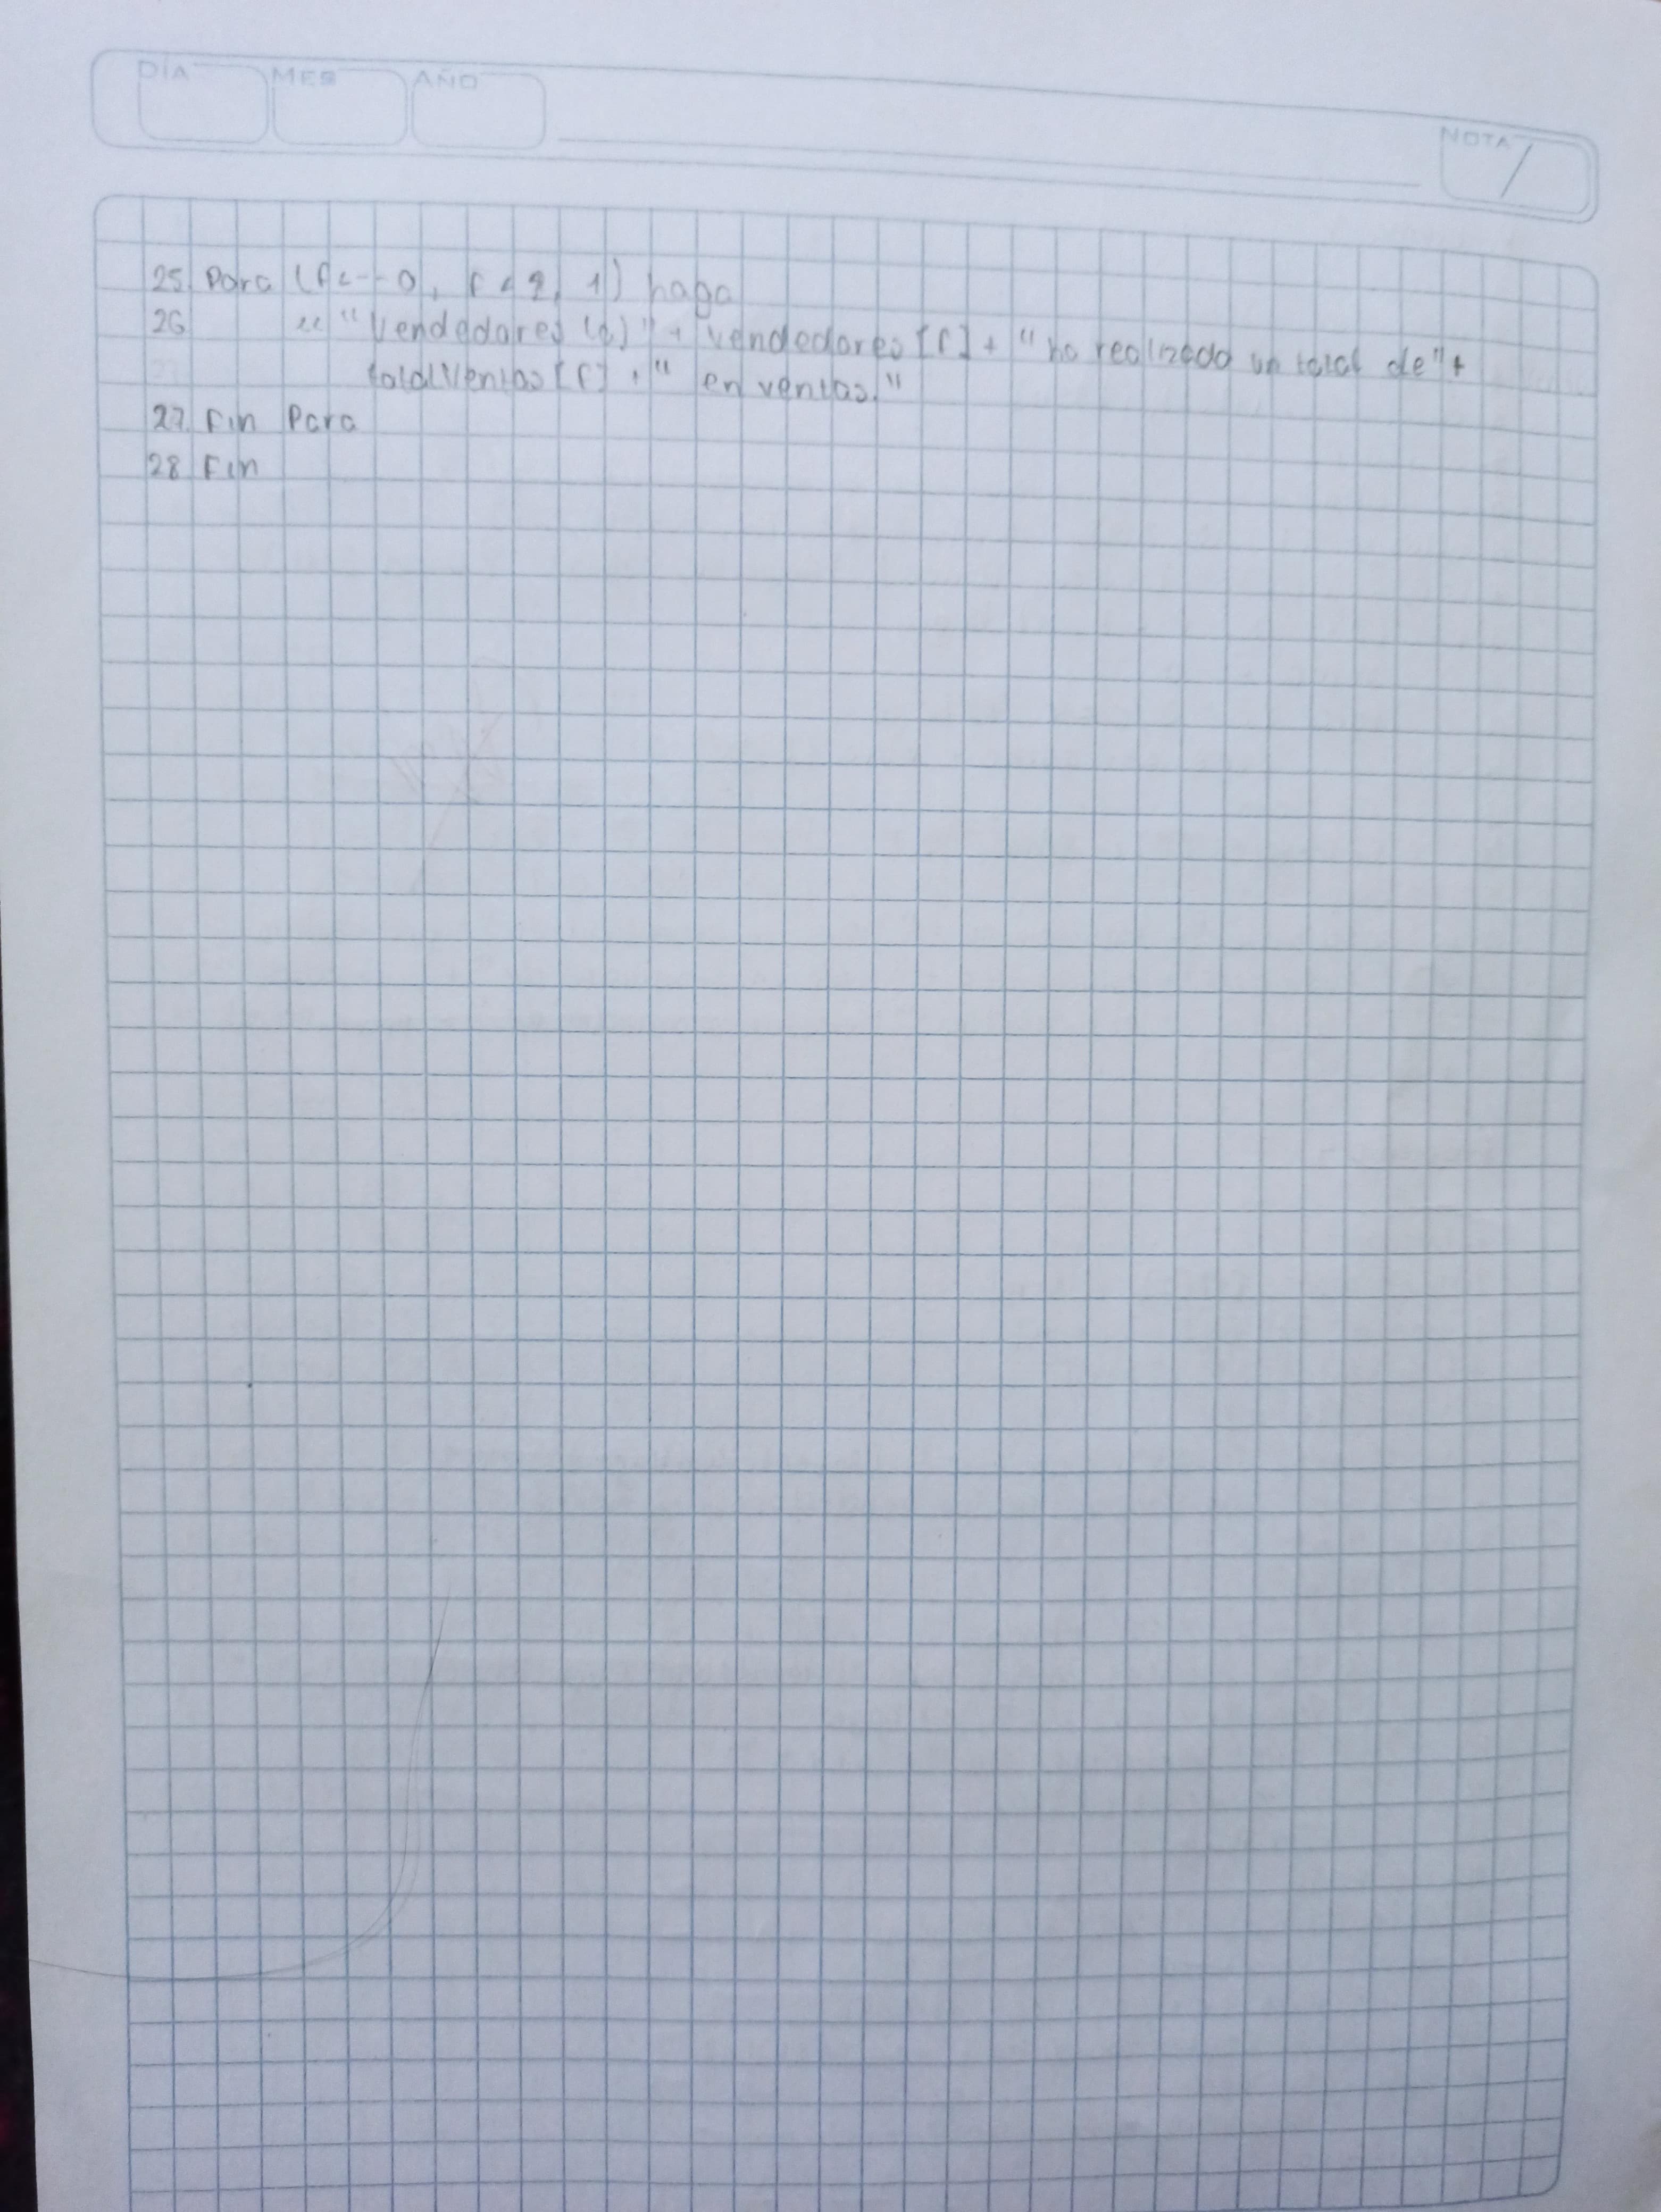 DÍA MES AÑO
NOTA
25 Para (f<--0, f<9, 1) haga
26 << "Vendedores (a)" + vendedores [f] + "ha realizado un total de" +
totalVentas [f] + " en ventas."
27. Fin Para
28 Fin